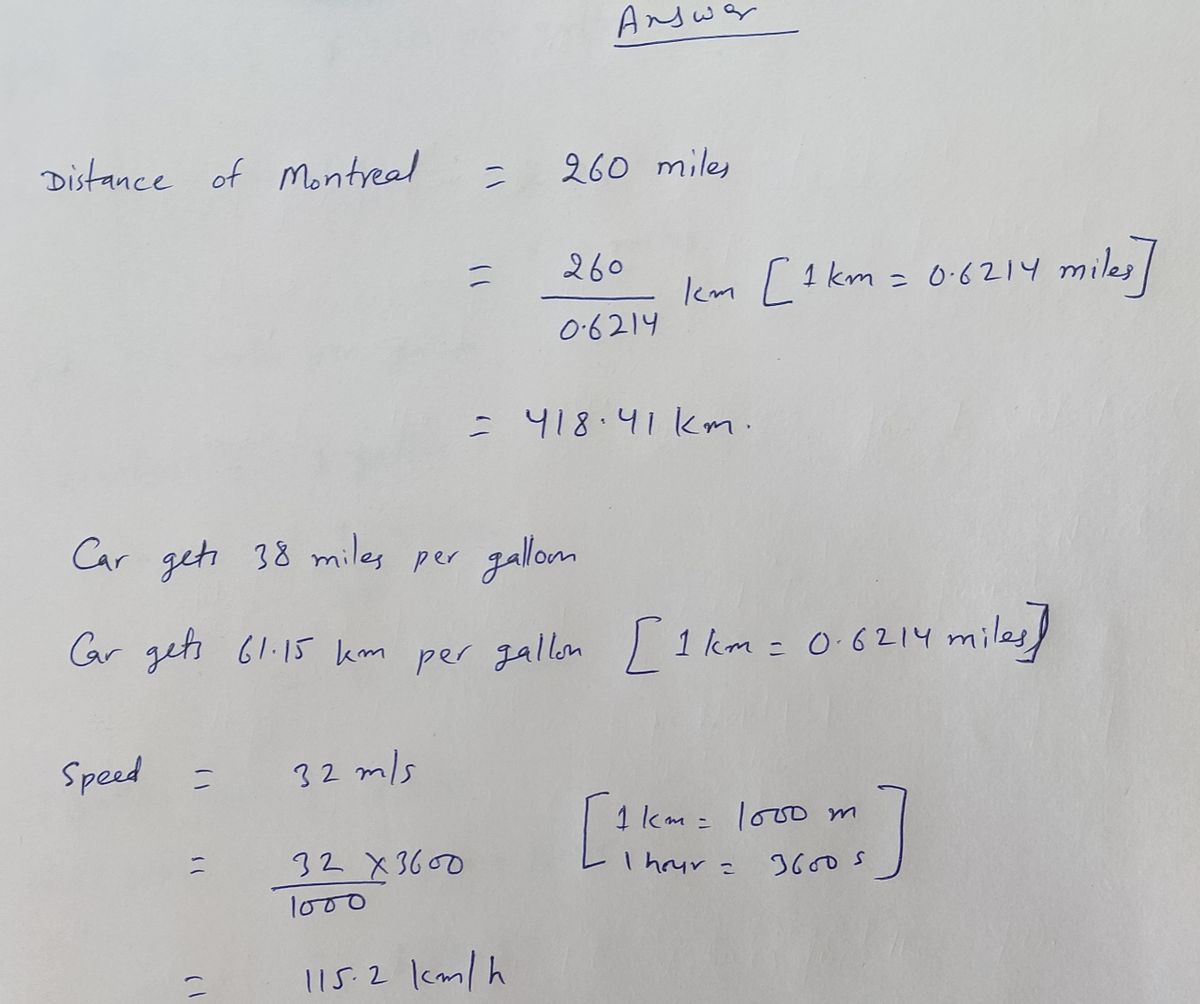 Answer
Distance of Montreal = 260 miles
= 260/0.6214 km [1 km = 0.6214 miles]
= 418.41 km.
Car gets 38 miles per gallon
Car gets 61.15 km per gallon [1 km = 0.6214 miles]
Speed = 32 m/s
= 32 × 3600/1000 [1 km = 1000 m
1 hour = 3600 s]
= 115.2 km/h